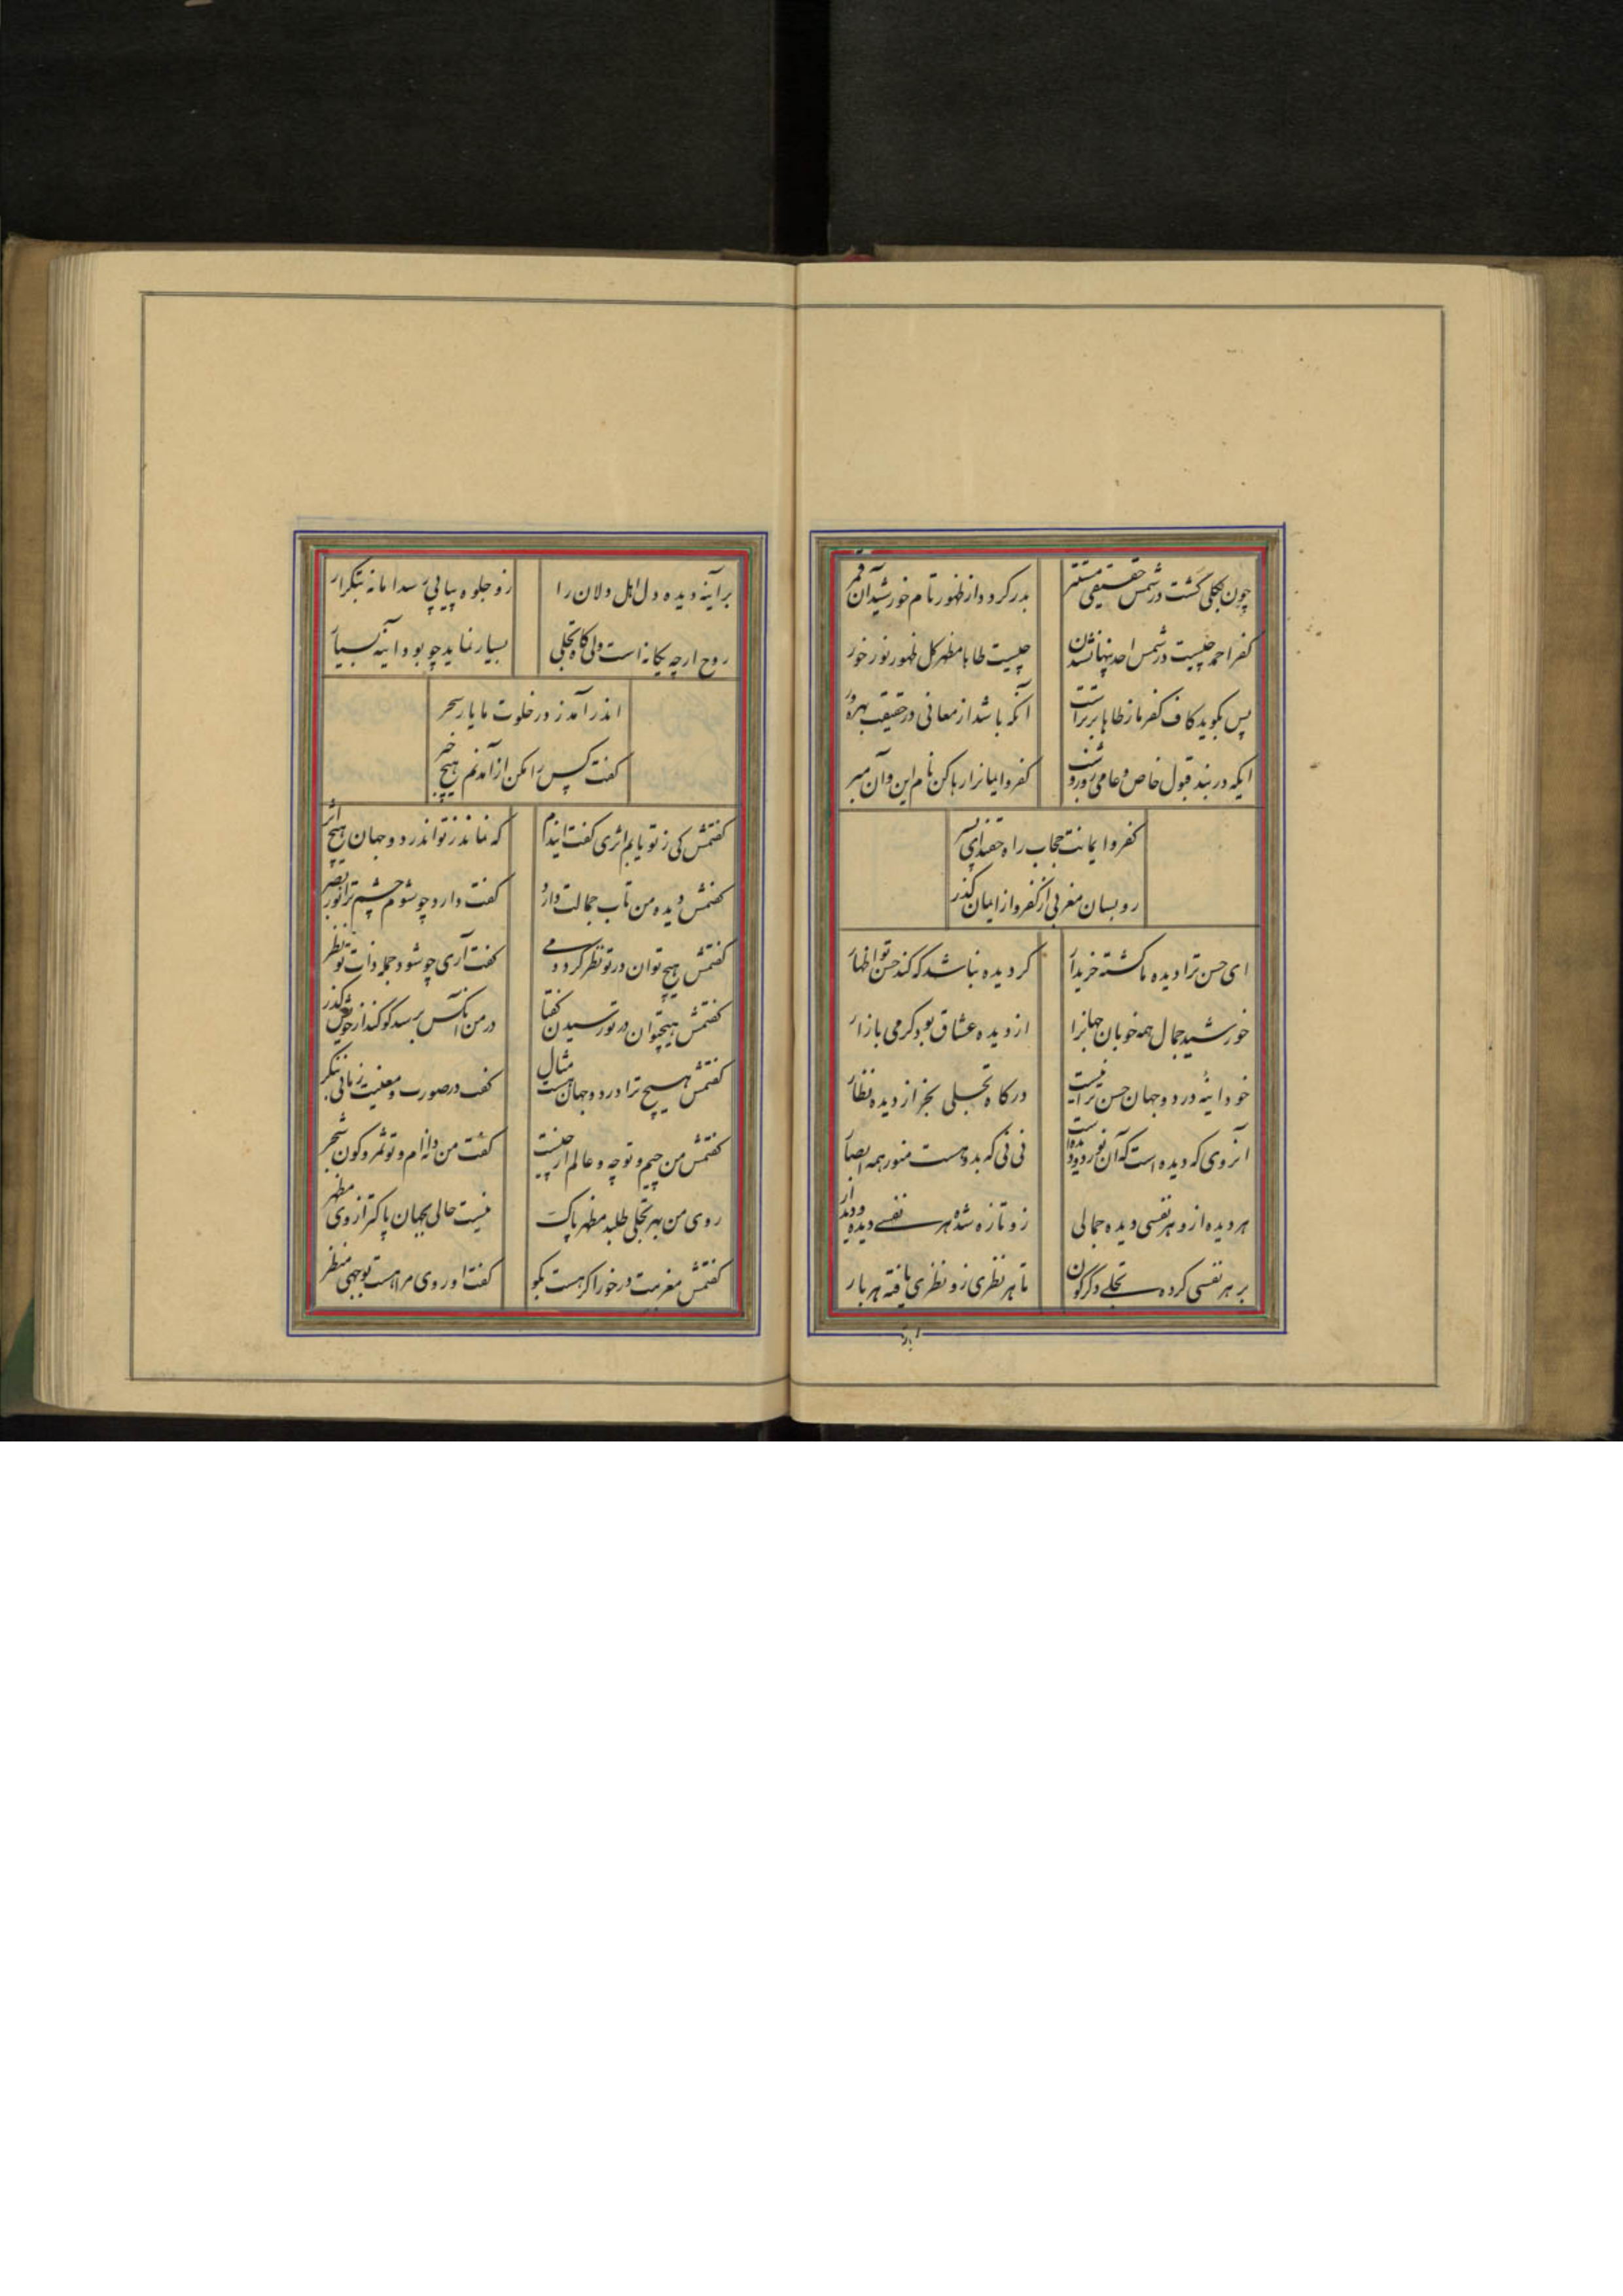 چون بکلی گشت در شمس حقیقی مستتر
بدر کرود از ظهور تام خورشید آن قمر
کفر احمد چیست در شمس احد پنهان شدن
چیست طاها مظهر کل ظهور نور خور
پس بگوید کاف کفر ما ز طاها برتر است
آنکه باشد از معانی در حقیقت بهره ور
ایکه در بند قبول خاص و عامی روز و شب
کفر و ایمانرا رها کن نام این و آن مبر
کفر و ایمانت حجاب راه حقند ای پسر
رو بسان مغربی از کفر و از ایمان گذر
ای حسن ترا دیده ما گشته خریدار
گر دیده نباشد که کند حسن تو اظهار
خورشید جمال همه خوبان جهانرا
از دیده عشاق بود گرمی بازار
خود اینه در دو جهان حسن ترا نیست
در گاه تجلی بجز از دیده نظار
آنروی که دیده است که آن نور دو دیده است
نی نی که بدو هست منور همه ابصار
هر دیده ازو هر نفسی دیده جمالی
زو تازه شده هر نفسے دیده و دیدار
بر هر نفسی کرده تجلے دگرگون
تا هر نظری زو نظری یافته هر بار
بر
بر آینه دیده و دل اهل ولان را
زو جلوه پیاپی رسد اما نه بتکرار
روح ارچه یکانه است ولی گاه تجلی
بسیار نماید چو بود اینه بسیار
اندر آمد ز در خلوت ما یار سحر
گفت کس را مکن از آمدنم هیچ خبر
گفتمش کی ز تو یابم اثری گفت اندم
که نماند ز تو اندر دو جهان هیچ اثر
گفتمش دیده من تاب جمالت دارد
گفت دارد چو شوم چشم ترا نور بصر
گفتمش هیچ توان در تو نظر کرد دمے
گفت آری چو شود جمله ذات تو نظر
گفتمش هیچ توان در تو رسیدن گفتا
در من آنکس برسد کو کند از خویش گذر
گفتمش هیچ ترا در دو جهان هست مثال
گفت در صورت و معنیت زمانی بنگر
گفتمش من چیم و تو چه و عالم از چیست
گفت من دانه ام و تو ثمر و کون شجر
روی من بهر تجلی طلبد مظهر پاک
نیست حالی بجهان پاکتر از وی مظهر
گفتمش مغربیت در خور اگر هست بگو
گفت او روی مرا هست بوجهی منظر